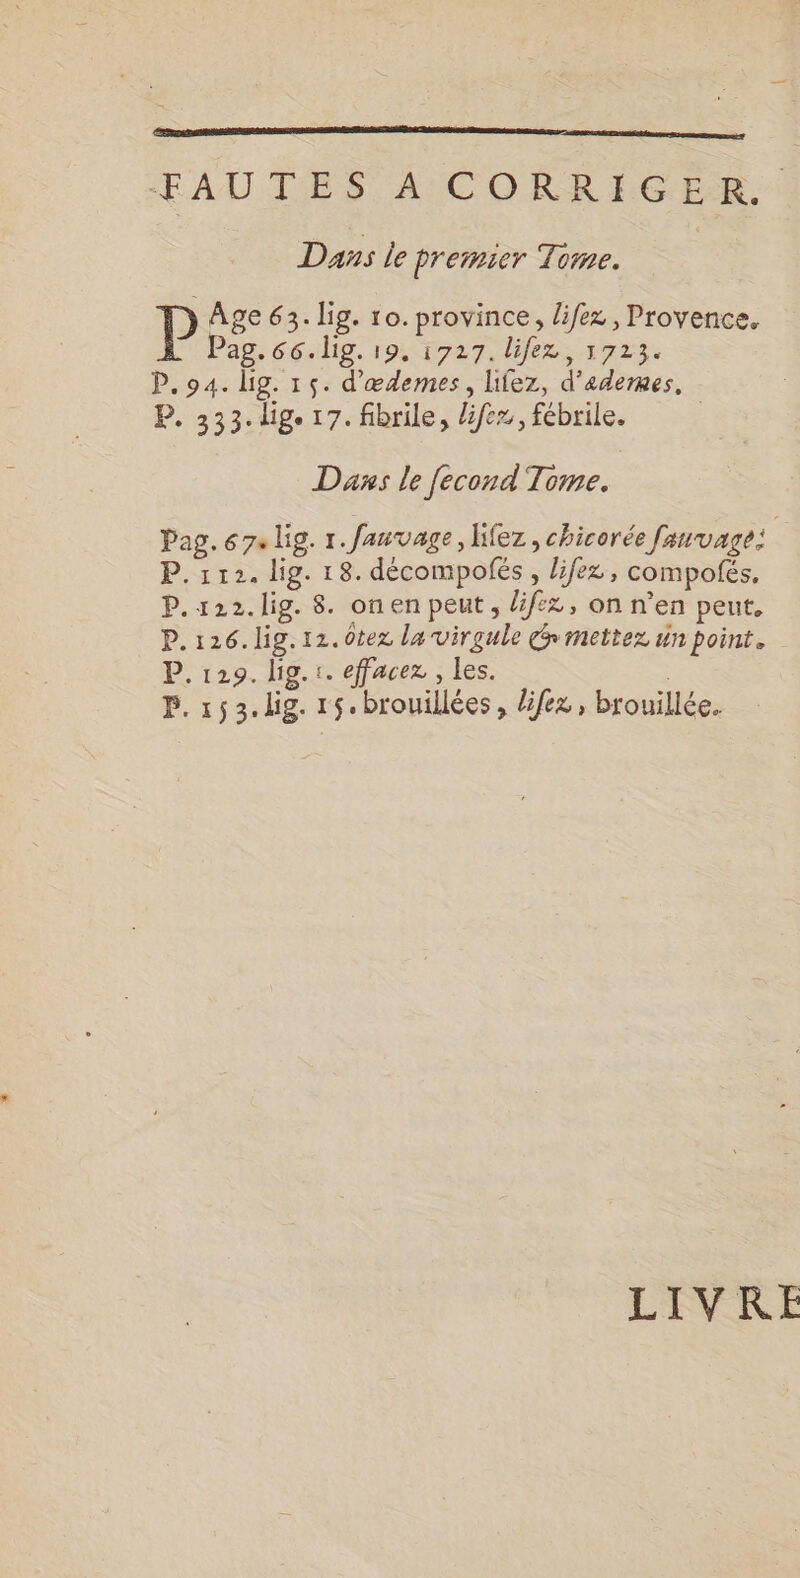 FAUTES A CORRIGER.
Dans le premier Tome.
PAge 63. lig. 10. province, liſez, Provence.
Pag. 66. lig. 19. 1727. liſez, 1723.
P. 94. lig. 15. d'œdemes, liſez, d'ademes.
P. 333. lig. 17. fibrile, liſez, fébrile.
Dans le ſecond Tome.
Pag. 67. lig. 1. ſauvage, liſez, chicorée ſauvage;
P. 112. lig. 18. décompoſés, liſez, compoſés.
P. 122. lig. 8. on en peut, liſez, on n'en peut.
P. 126. lig. 12. ôtez la virgule & mettez un point.
P. 129. lig. 1. effacez, les.
P. 153. lig. 15. brouillées, liſez, brouillée.
LIVRE